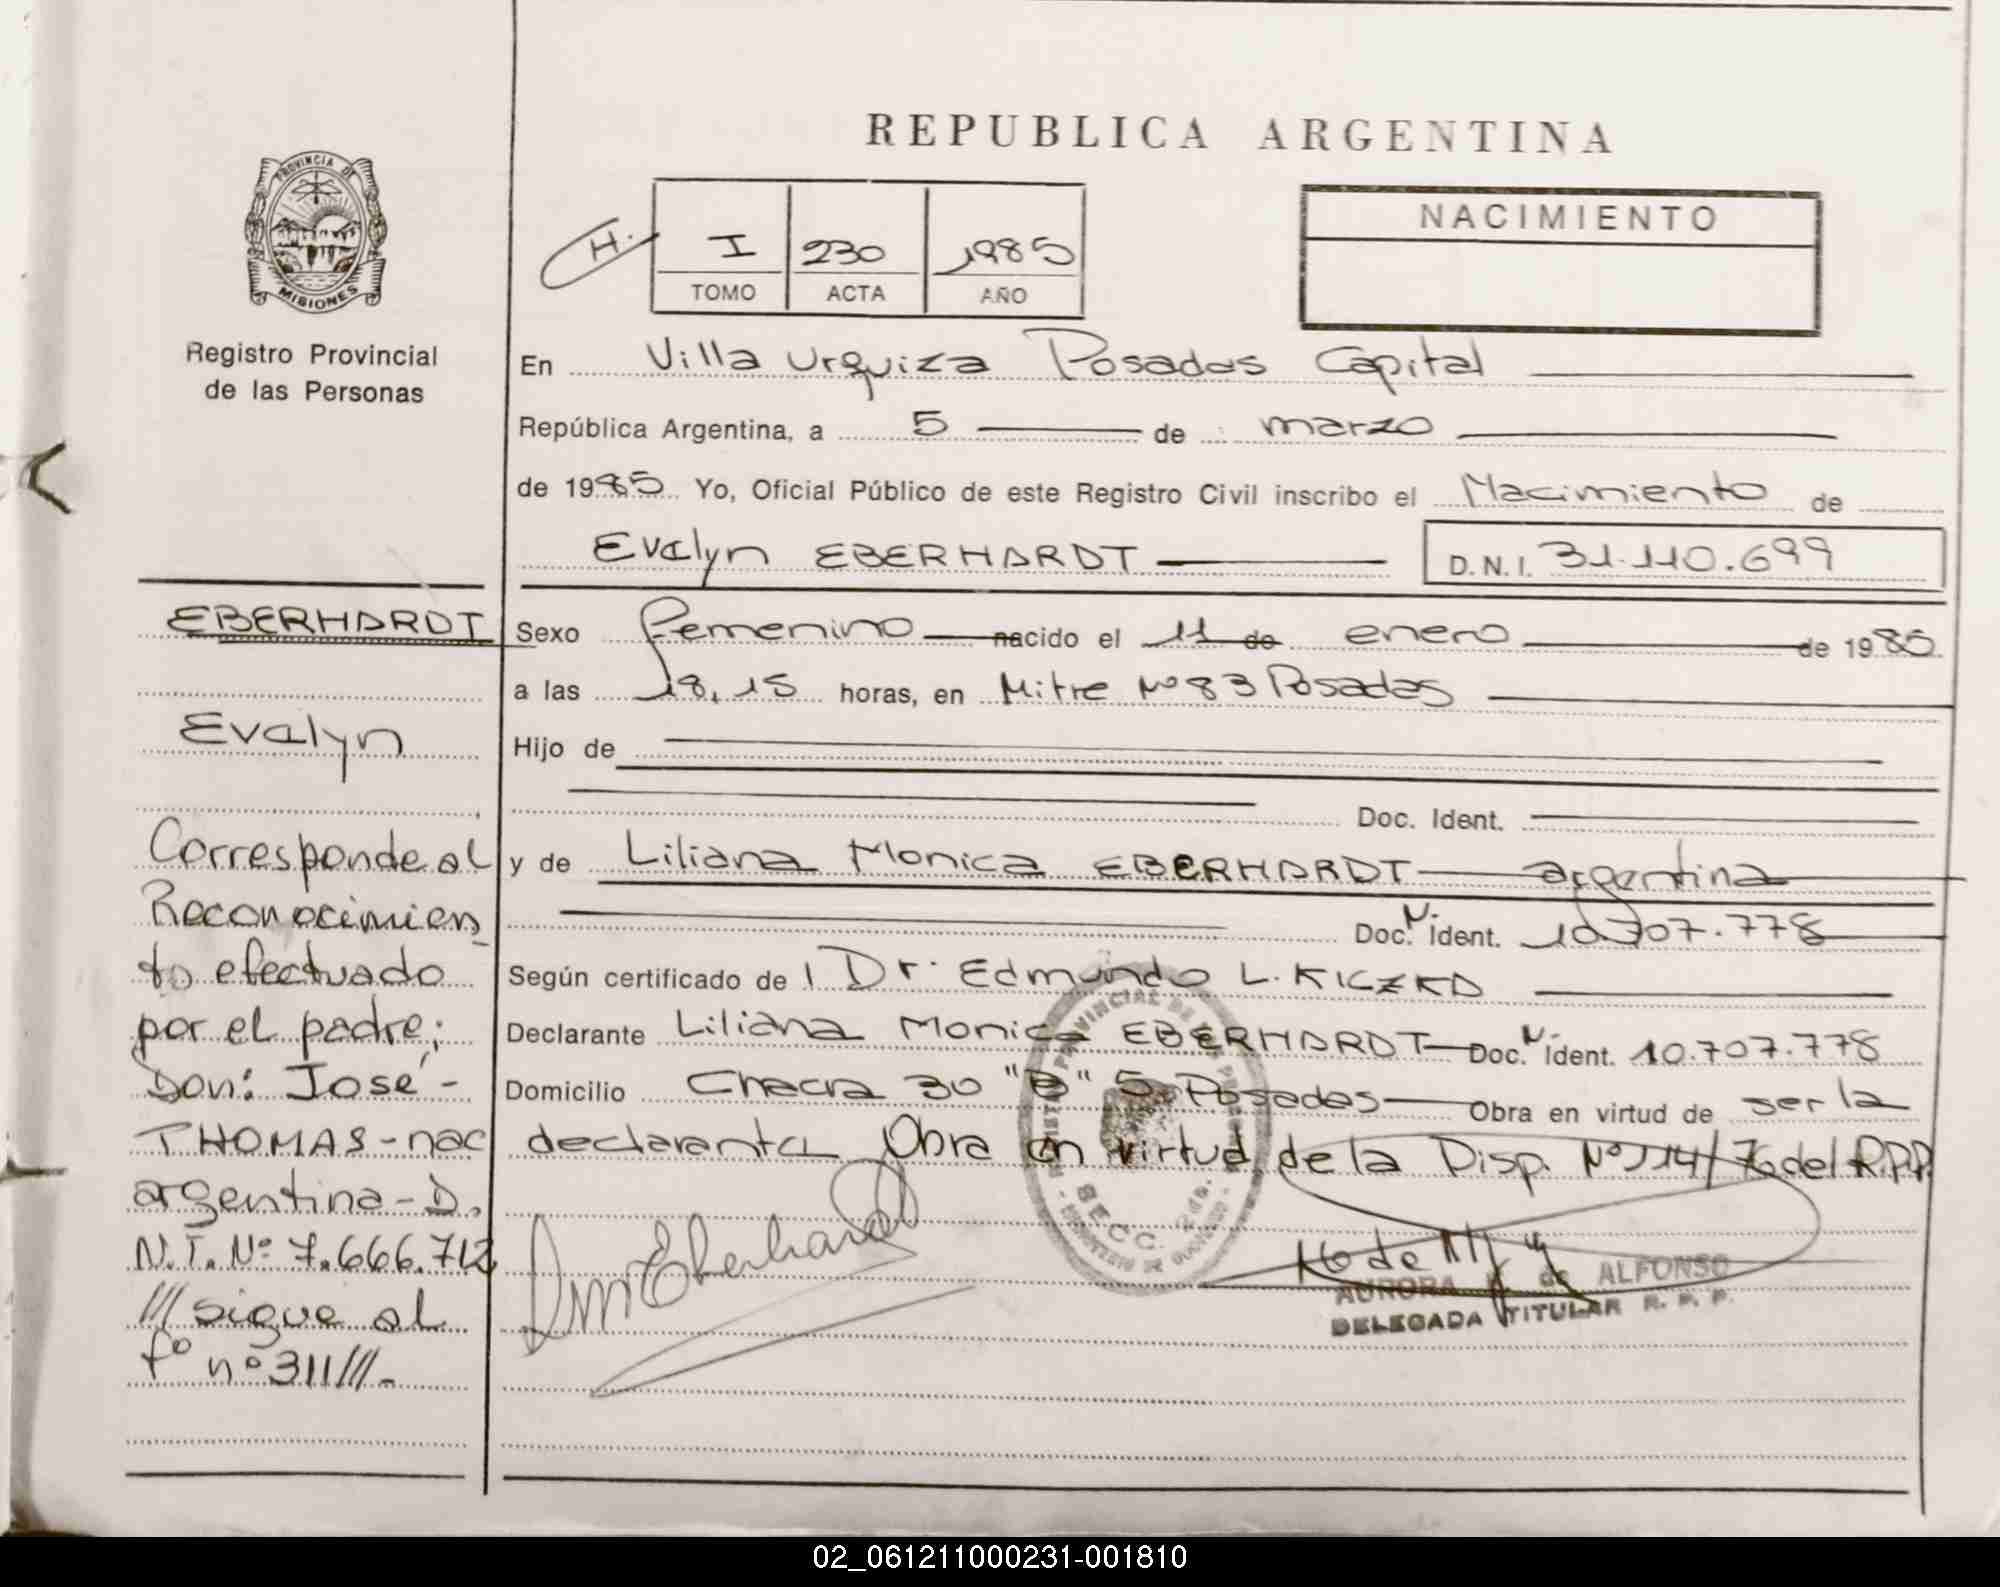 REPUBLICA ARGENTINA
PROVINCIA DE
MISIONES
Registro Provincial
de las Personas
H.
I 230 1985
TOMO ACTA AÑO
NACIMIENTO
En Villa Urquiza Posadas Capital
República Argentina, a 5 de marzo
de 1985 Yo, Oficial Público de este Registro Civil inscribo el Nacimiento de
Evalyn EBERHARDT D.N.I. 31.110.699
Sexo femenino nacido el 11 de enero de 1985.
a las 18,15 horas, en Mitre Nº 83 Posadas
Hijo de
Doc. Ident.
y de Liliana Monica EBERHARDT argentina
Doc. N. Ident. 10.707.778
Según certificado de Dr. Edmundo L. KICZKO
Declarante Liliana Monica EBERHARDT Doc. N. Ident. 10.707.778
Domicilio Chacra 30 "B" 5 Posadas Obra en virtud de ser la
declaranta Obra en virtud de la Disp. Nº 114/76 del R.P.P.
SECC. 2da.
AURORA de ALFONSO
DELEGADA TITULAR R. P. P.
EBERHARDT
Evalyn
Corresponde al
Reconocimien
to efectuado
por el padre;
Don: José -
THOMAS - nac
argentina - D.
N.I. Nº 7.666.712
/// sigue al
fº nº 311///-
02_061211000231-001810